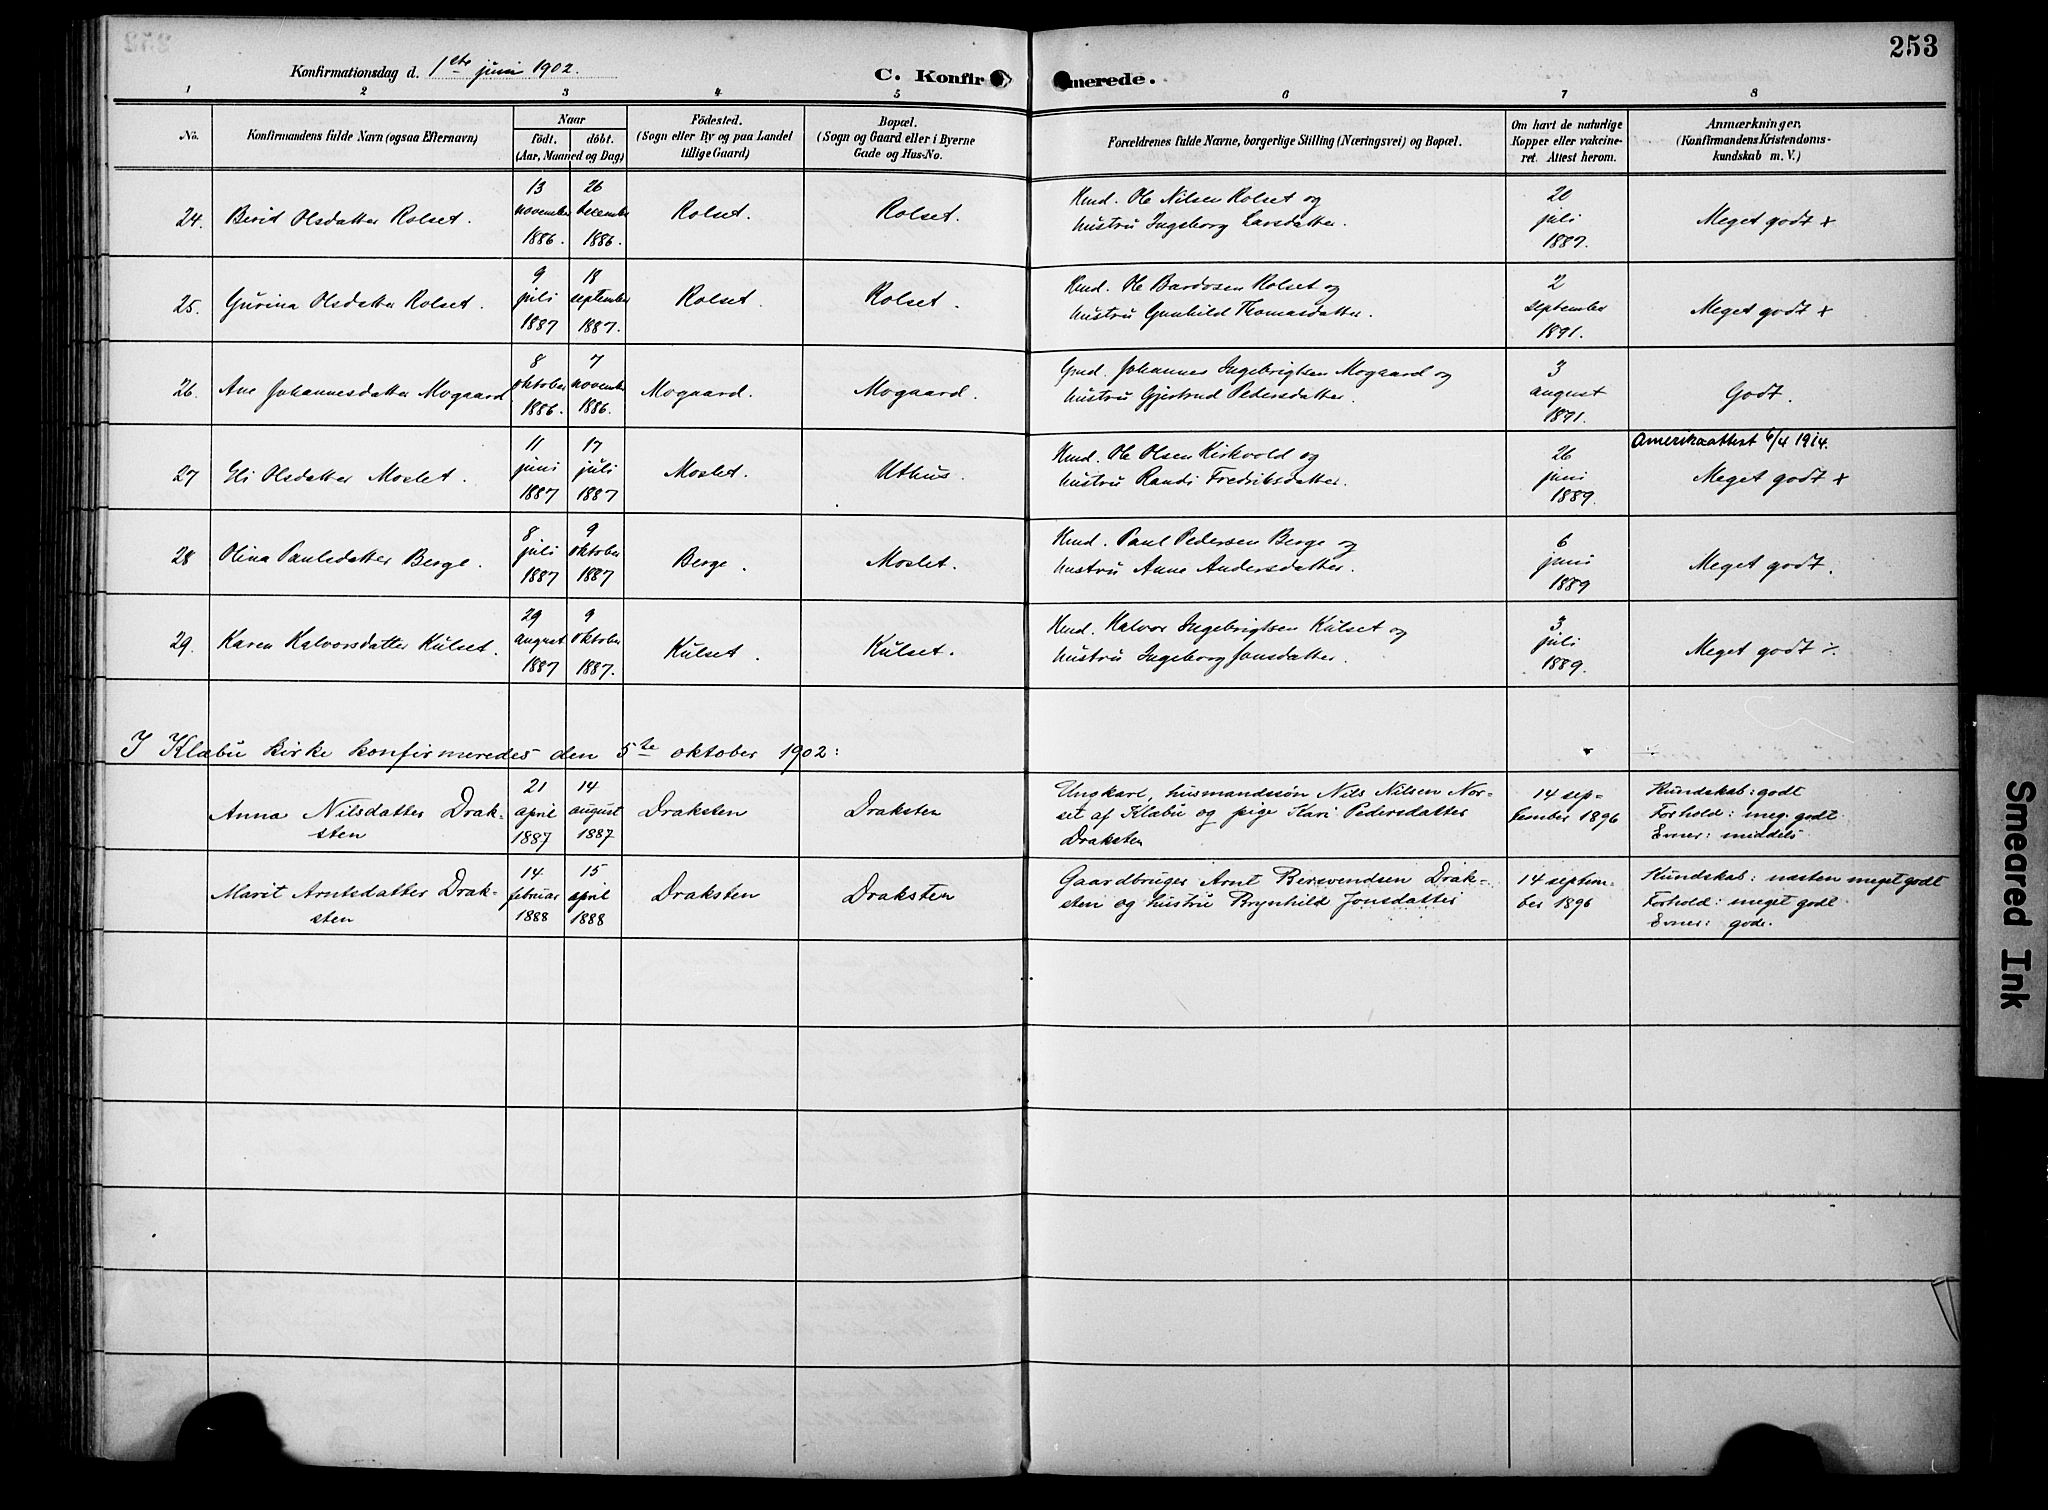 253
Konfirmationsdag d. 1ste juni 1902.
C. Konfirmerede.
1 2 3 4 5 6 7 8
No.
Konfirmandens fulde Navn (ogsaa Efternavn)
Naar
födt. döbt.
(Aar, Maaned og Dag)
Födested.
(Sogn eller By og paa Landet
tillige Gaard)
Bopæl.
(Sogn og Gaard eller i Byerne
Gade og Hus-No.
Forældrenes fulde Navne, borgerlige Stilling (Næringsvei) og Bopæl.
Om havt de naturlige
Kopper eller vakcine-
ret. Attest herom.
Anmærkninger,
(Konfirmandens Kristendoms-
kundskab m. V.)
24. Berit Olsdatter Rolset.
13 november 1886.
26 december 1886.
Rolset.
Rolset.
Hmd. Ole Nilsen Rolset og
hustru Ingeborg Larsdatter.
20 juli 1887.
Meget godt +
25. Gurina Olsdatter Rolset.
9 juli 1887
18 september 1887.
Rolset.
Rolset.
Hmd. Ole Bardosen Rolset og
hustru Gunhild Thomasdatter.
2 september 1891.
Meget godt +
26. Ane Johannesdatter Mogaard
8 oktober 1886.
7 november 1886.
Mogaard.
Mogaard.
Gmd. Johannes Ingebrigtsen Mogaard og
hustru Gjertrud Pedersdatter.
3 august 1891.
Godt.
27 Eli Olsdatter Moslet.
11 juni 1887
17 juli 1887
Moslet.
Uthus.
Hmd. Ole Olsen Kirkvold og
hustru Randi Fredriksdatter.
26 juni 1889.
Amerikaattest 6/4 1914.
Meget godt +
28 Olina Paulsdatter Berge.
8 juli 1887
9 oktober 1887
Berge.
Moslet.
Hmd. Paul Pedersen Berge og
hustru Anne Andersdatter.
6 juni 1889
Meget godt.
29. Karen Halvorsdatter Kulset.
29 august 1887
9 oktober 1887.
Kulset.
Kulset.
Hmd. Halvor Ingebrigtsen Kulset og
hustru Ingeborg Jonsdatter.
3 juli 1889.
Meget godt ÷
I Klæbu kirke konfirmeredes den 5te oktober 1902:
Anna Nilsdatter Drak-
sten
21 april 1887
14 august 1887
Draksten
Draksten
Ungkarl, husmandssøn Nils Nilsen Nor-
set af Klæbu og pige Kari Pedersdatter
Draksten
14 sep-
tember 1896
Kundskab: godt
Forhold: meg. godt
Evner: middels
Marit Arntsdatter Drak-
sten
14 februar 1888
15 april 1888
Draksten
Draksten
Gaardbruger Arnt Bersvendsen Drak-
sten og hustru Brynhild Jonsdatter
14 septem-
ber 1896
Kundskab: næsten meget godt
Forhold: meget godt
Evner: gode.
Smeared Ink